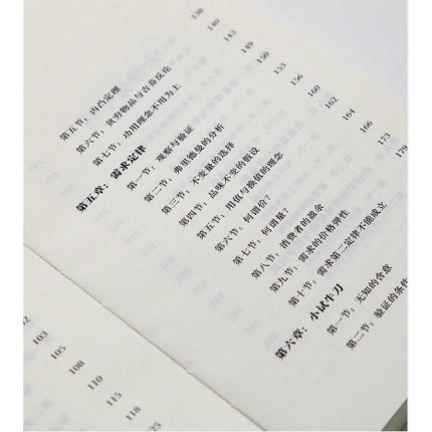 第五节:内凸定理
第六节:贫穷物品与吉芬反论
第七节:功用理念不用为上
第五章:需求定律
第一节:观察与验证
第二节:弗里德曼的分析
第三节:不变量的选择
第四节:品味不变的假设
第五节:用值与换值的理念
第六节:何谓价?
第七节:何谓量?
第八节:消费者的盈余
第九节:需求的价格弹性
第十节:需求第二定律不能成立
第六章:小试牛刀
第一节:无知的含意
第二节:验证的条件
138
140
143
149
150
153
156
160
162
164
166
173
179
103
105
108
110
115
118